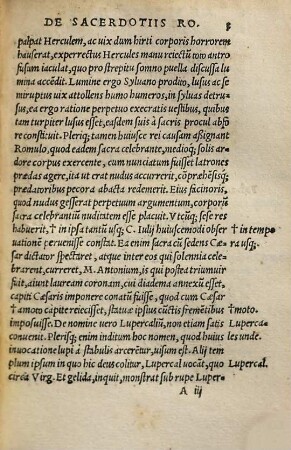 DE SACERDOTIIS RO. 3
palpat Herculem, ac uix dum hirti corporis horrorem
hauserat, experrectus Hercules manu reiectũ toto antro
fusum iaculat, quo pro strepitus somno puella discussa lu
mina accẽdit. Lumine ergo Syluano prodito, lusus ac se
miruptus uix attollens humo humeros, in syluas detru-
sus, ea ergo ratione perpetuo execratis uestibus, quibus
tam turpiter lusus esset, easdem suis à sacris procul absto
re constituit. Pleriq; tamen huiusce rei causam aßignant
Romulo, quod eadem sacra celebrante, medioq; solis ar
dore corpus exercente, cum nunciatum fuisset latrones
prædas agere, ita ut erat nudus accurrerit, cõprehẽsisq;
prædatoribus pecora abacta redemerit. Eius facinoris,
quod nudus gesserat perpetuum argumentum, corporũ
sacra celebrantiũ nuditatem esse placuit. Vtcũq; sese res
habuerit, † in ipsa tantũ usq; C. Iulij huiuscemodi obser † in tempo
uationẽ peruenisse constat. Ea enim sacra cũ sedens Cæ ra usq;
sar dictator spectaret, atque inter eos qui solennia cele-
brarent, curreret, M. Antonium, is qui postea triumuir
fuit, aiunt lauream coronam, cui diadema annexũ esset,
capiti Cæsaris imponere conatũ fuisse, quod cum Cæsar
† amoto capite reiecisset, statuæ ipsius cũctis fremẽtibus †moto.
imposuisse. De nomine uero Lupercaliũ, non etiam satis Luperca
conuenit. Plerisq; enim inditum hoc nomen, quod huius les unde.
inuocatione lupi à stabulis arcerẽtur, uisum est. Alij tem
plum ipsum in quo hic deus colitur, Lupercal uocãt, quo Lupercal.
circa Virg. Et gelida, inquit, monstrat sub rupe Luper-
A iij